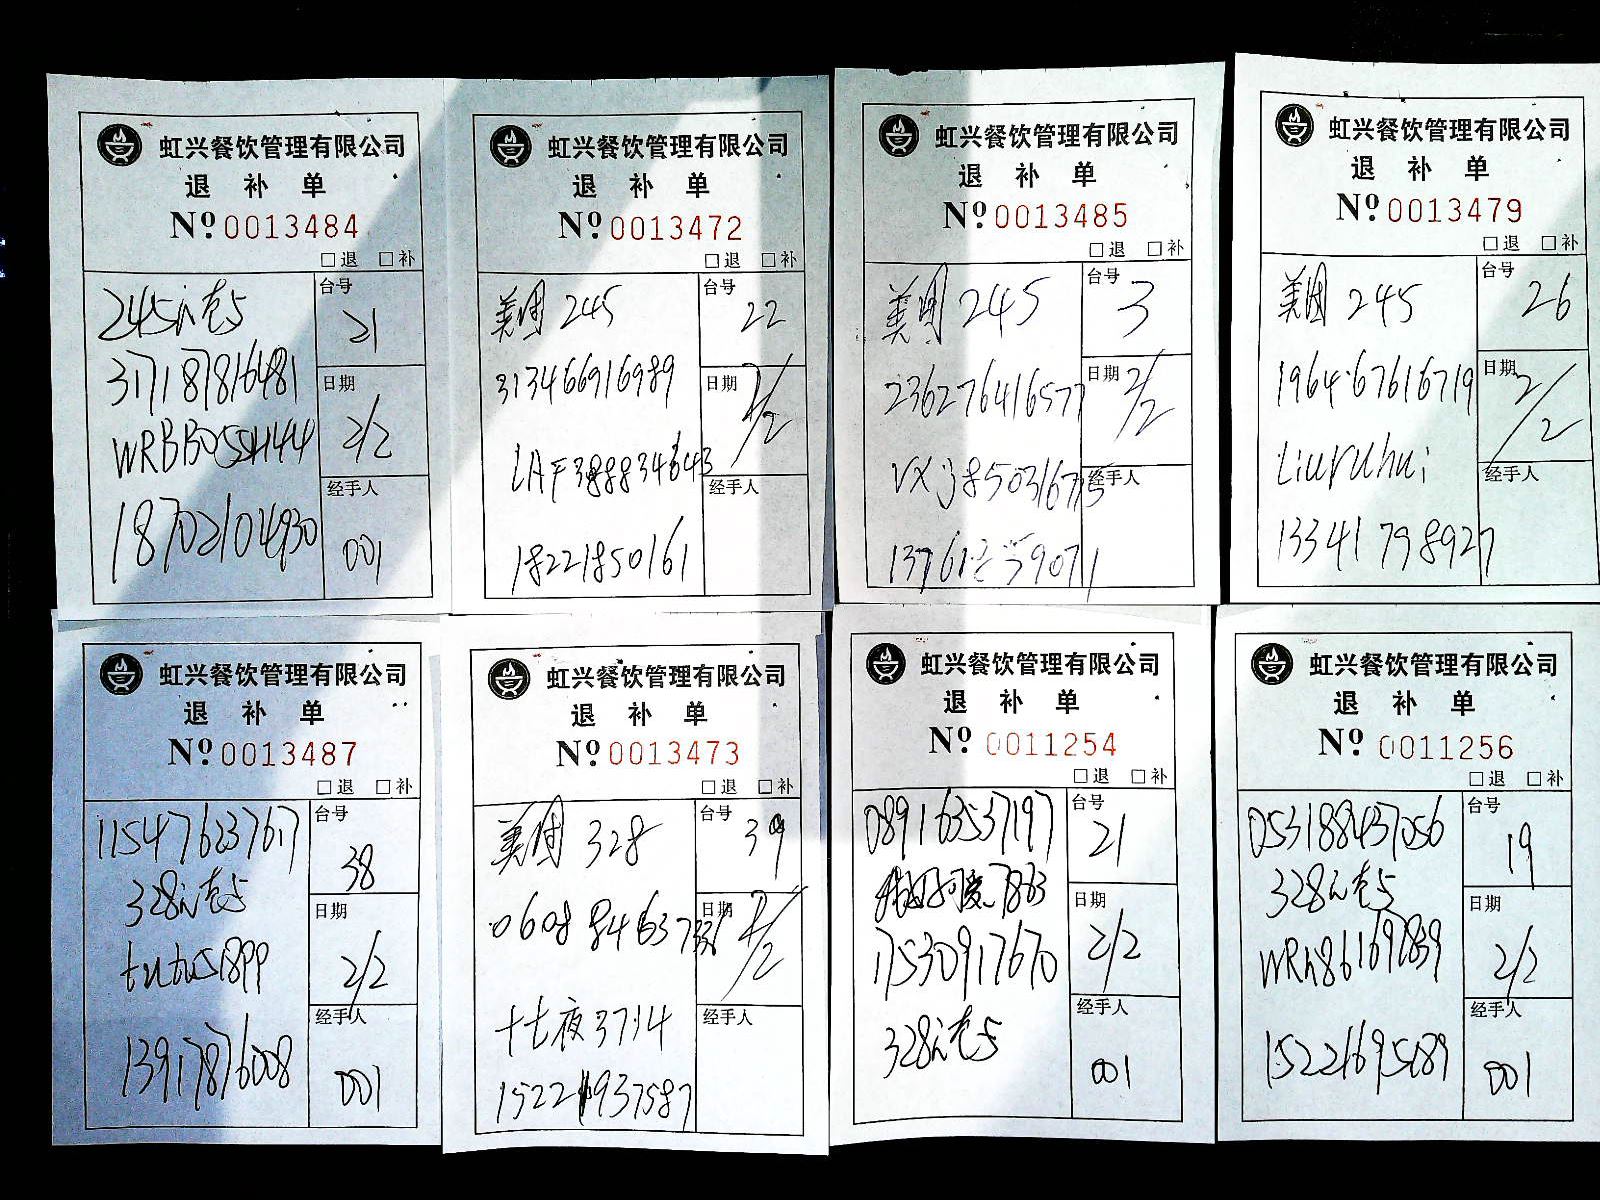 虹兴餐饮管理有限公司
退 补 单
Nº 0013484
□退 □补
台号
21
31718781648​1
日期
2/2
18702104930
经手人
001
虹兴餐饮管理有限公司
退 补 单
Nº 0013472
□退 □补
美团 245
台号
22
313466916989
日期
2/2
经手人
18221850161
虹兴餐饮管理有限公司
退 补 单
Nº 0013485
□退 □补
美团 245
台号
3
236276416577
日期
2/2
经手人
虹兴餐饮管理有限公司
退 补 单
Nº 0013479
□退 □补
美团 245
台号
26
196467616719
日期
2/2
Liuruhui
经手人
13341798927
虹兴餐饮管理有限公司
退 补 单
Nº 0013487
□退 □补
115476237617
台号
38
日期
tutu51899
2/2
经手人
13917876008
001
虹兴餐饮管理有限公司
退 补 单
Nº 0013473
□退 □补
美团 328
台号
39
日期
2/2
十七夜3714
经手人
虹兴餐饮管理有限公司
退 补 单
Nº 0011254
□退 □补
089163537197
台号
21
日期
17530917670
2/2
经手人
001
虹兴餐饮管理有限公司
退 补 单
Nº 0011256
□退 □补
053188437056
台号
19
日期
2/2
经手人
001